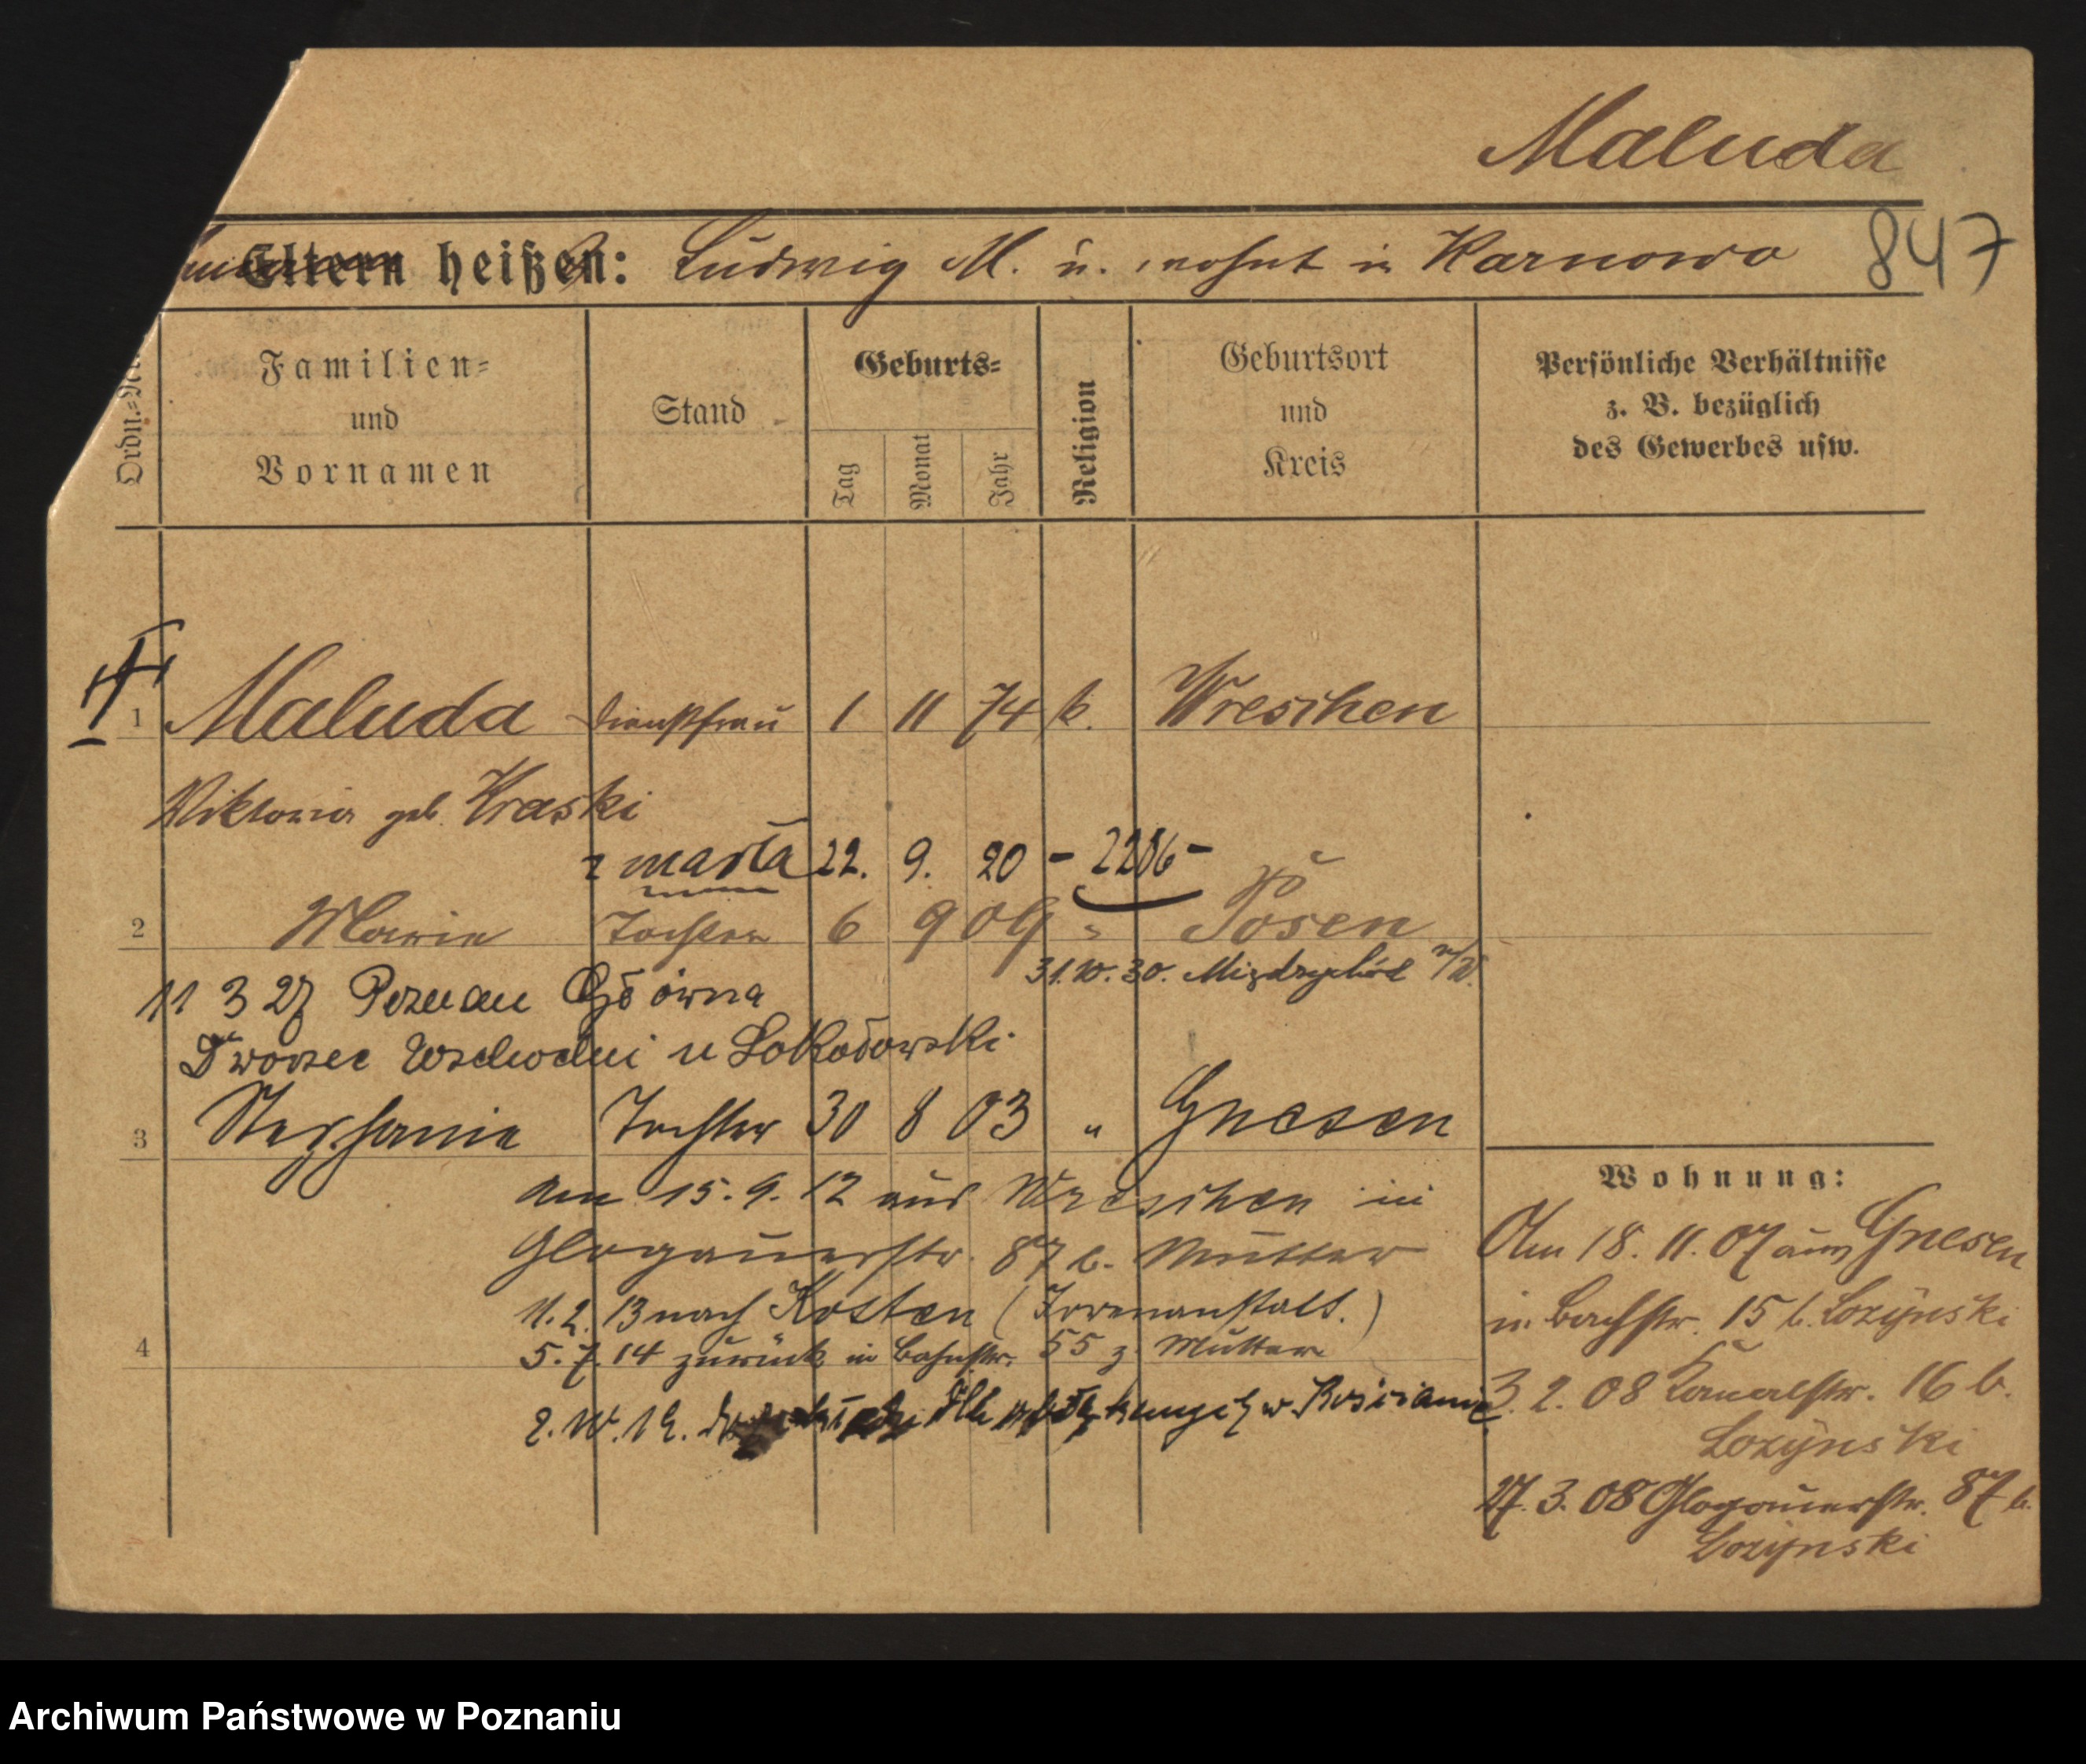 Maluda
847
Eltern heißen: Ludwig M. u. wohnt in Karnowo
Ordn.-Nr.
Familien-
und
Vornamen
Stand
Geburts-
Tag
Monat
Jahr
Religion
Geburtsort
und
Kreis
Persönliche Verhältnisse
z. B. bezüglich
des Gewerbes usw.
1 Maluda Dienstfrau 1 11 74 k. Wreschen
Viktoria geb. Kraski
zmarła 22. 9. 20 - 2286 -
2 Marie Tochter 6 9 09 " Posen
31.10.30. Międzychód n/W.
11 3 27 Poznan Główna
Dworzec Wschodni u Sokołowski
3 Stephanie Tochter 30 8 03 " Gnesen
am 15.9.12 aus Wreschen in
Glogauerstr. 87 b. Mutter
11.2.13 nach Kosten (Irrenanstalt.)
4
5.7.14 zurück in Bahnstr. 55 z. Mutter
2.10.19. w Kościanie
Wohnung:
Am 18.11.07 aus Gnesen
in Bachstr. 15 b. Lozynski
3.2.08 Kanalstr. 16 b.
Lozynski
27.3.08 Glogauerstr. 87 b.
Lozynski
Archiwum Państwowe w Poznaniu